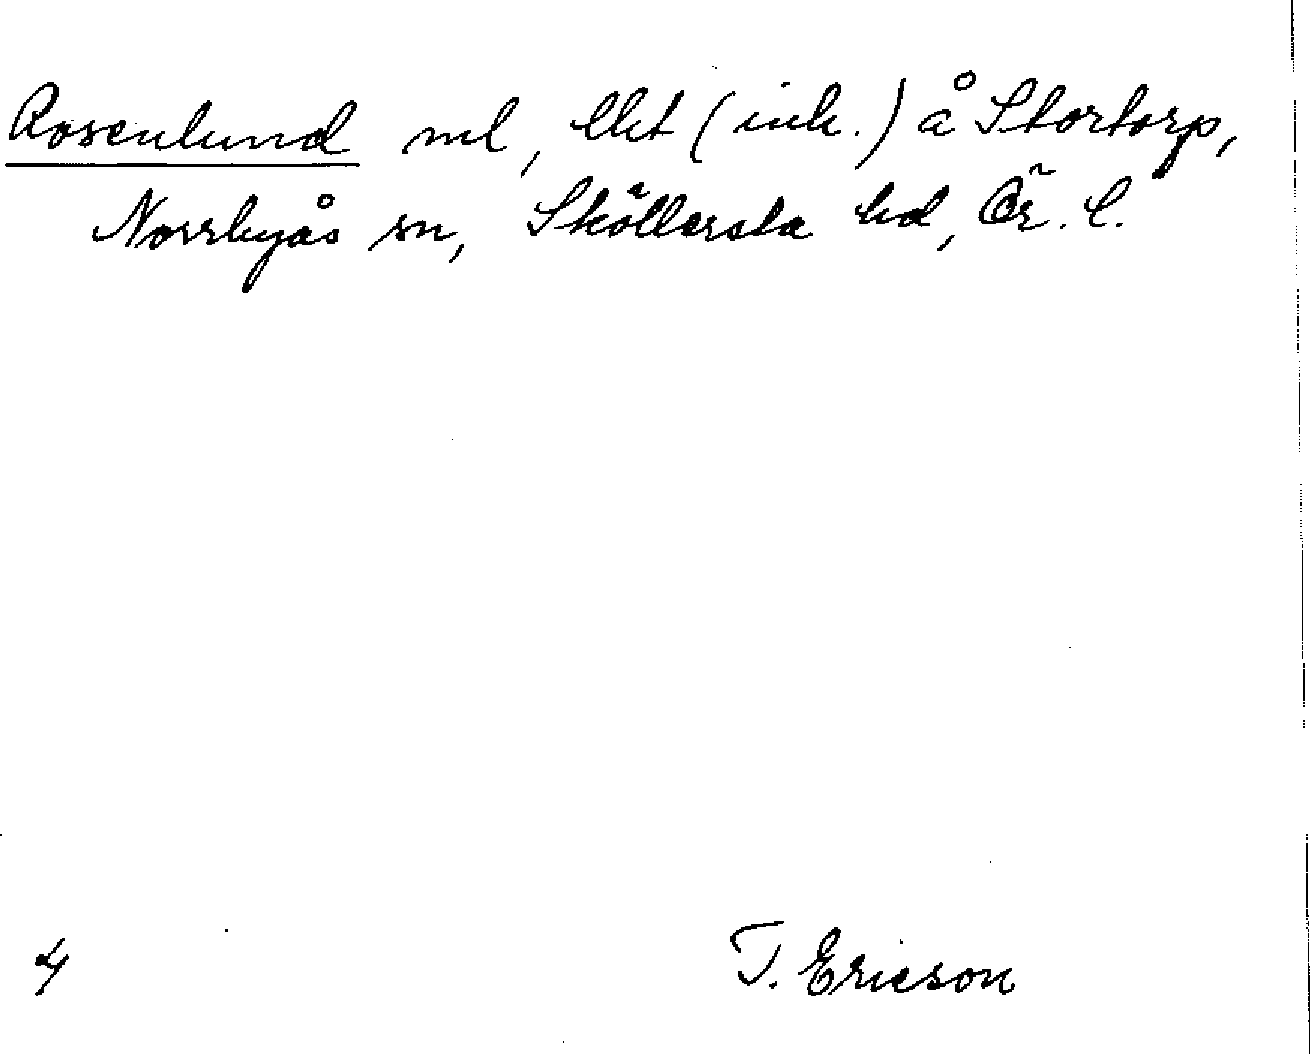 Rosenlund ml, lht (ink.) å Stortorp,
Norrbyås sn, Sköllersta hd, Ör. l.
4
T. Ericson